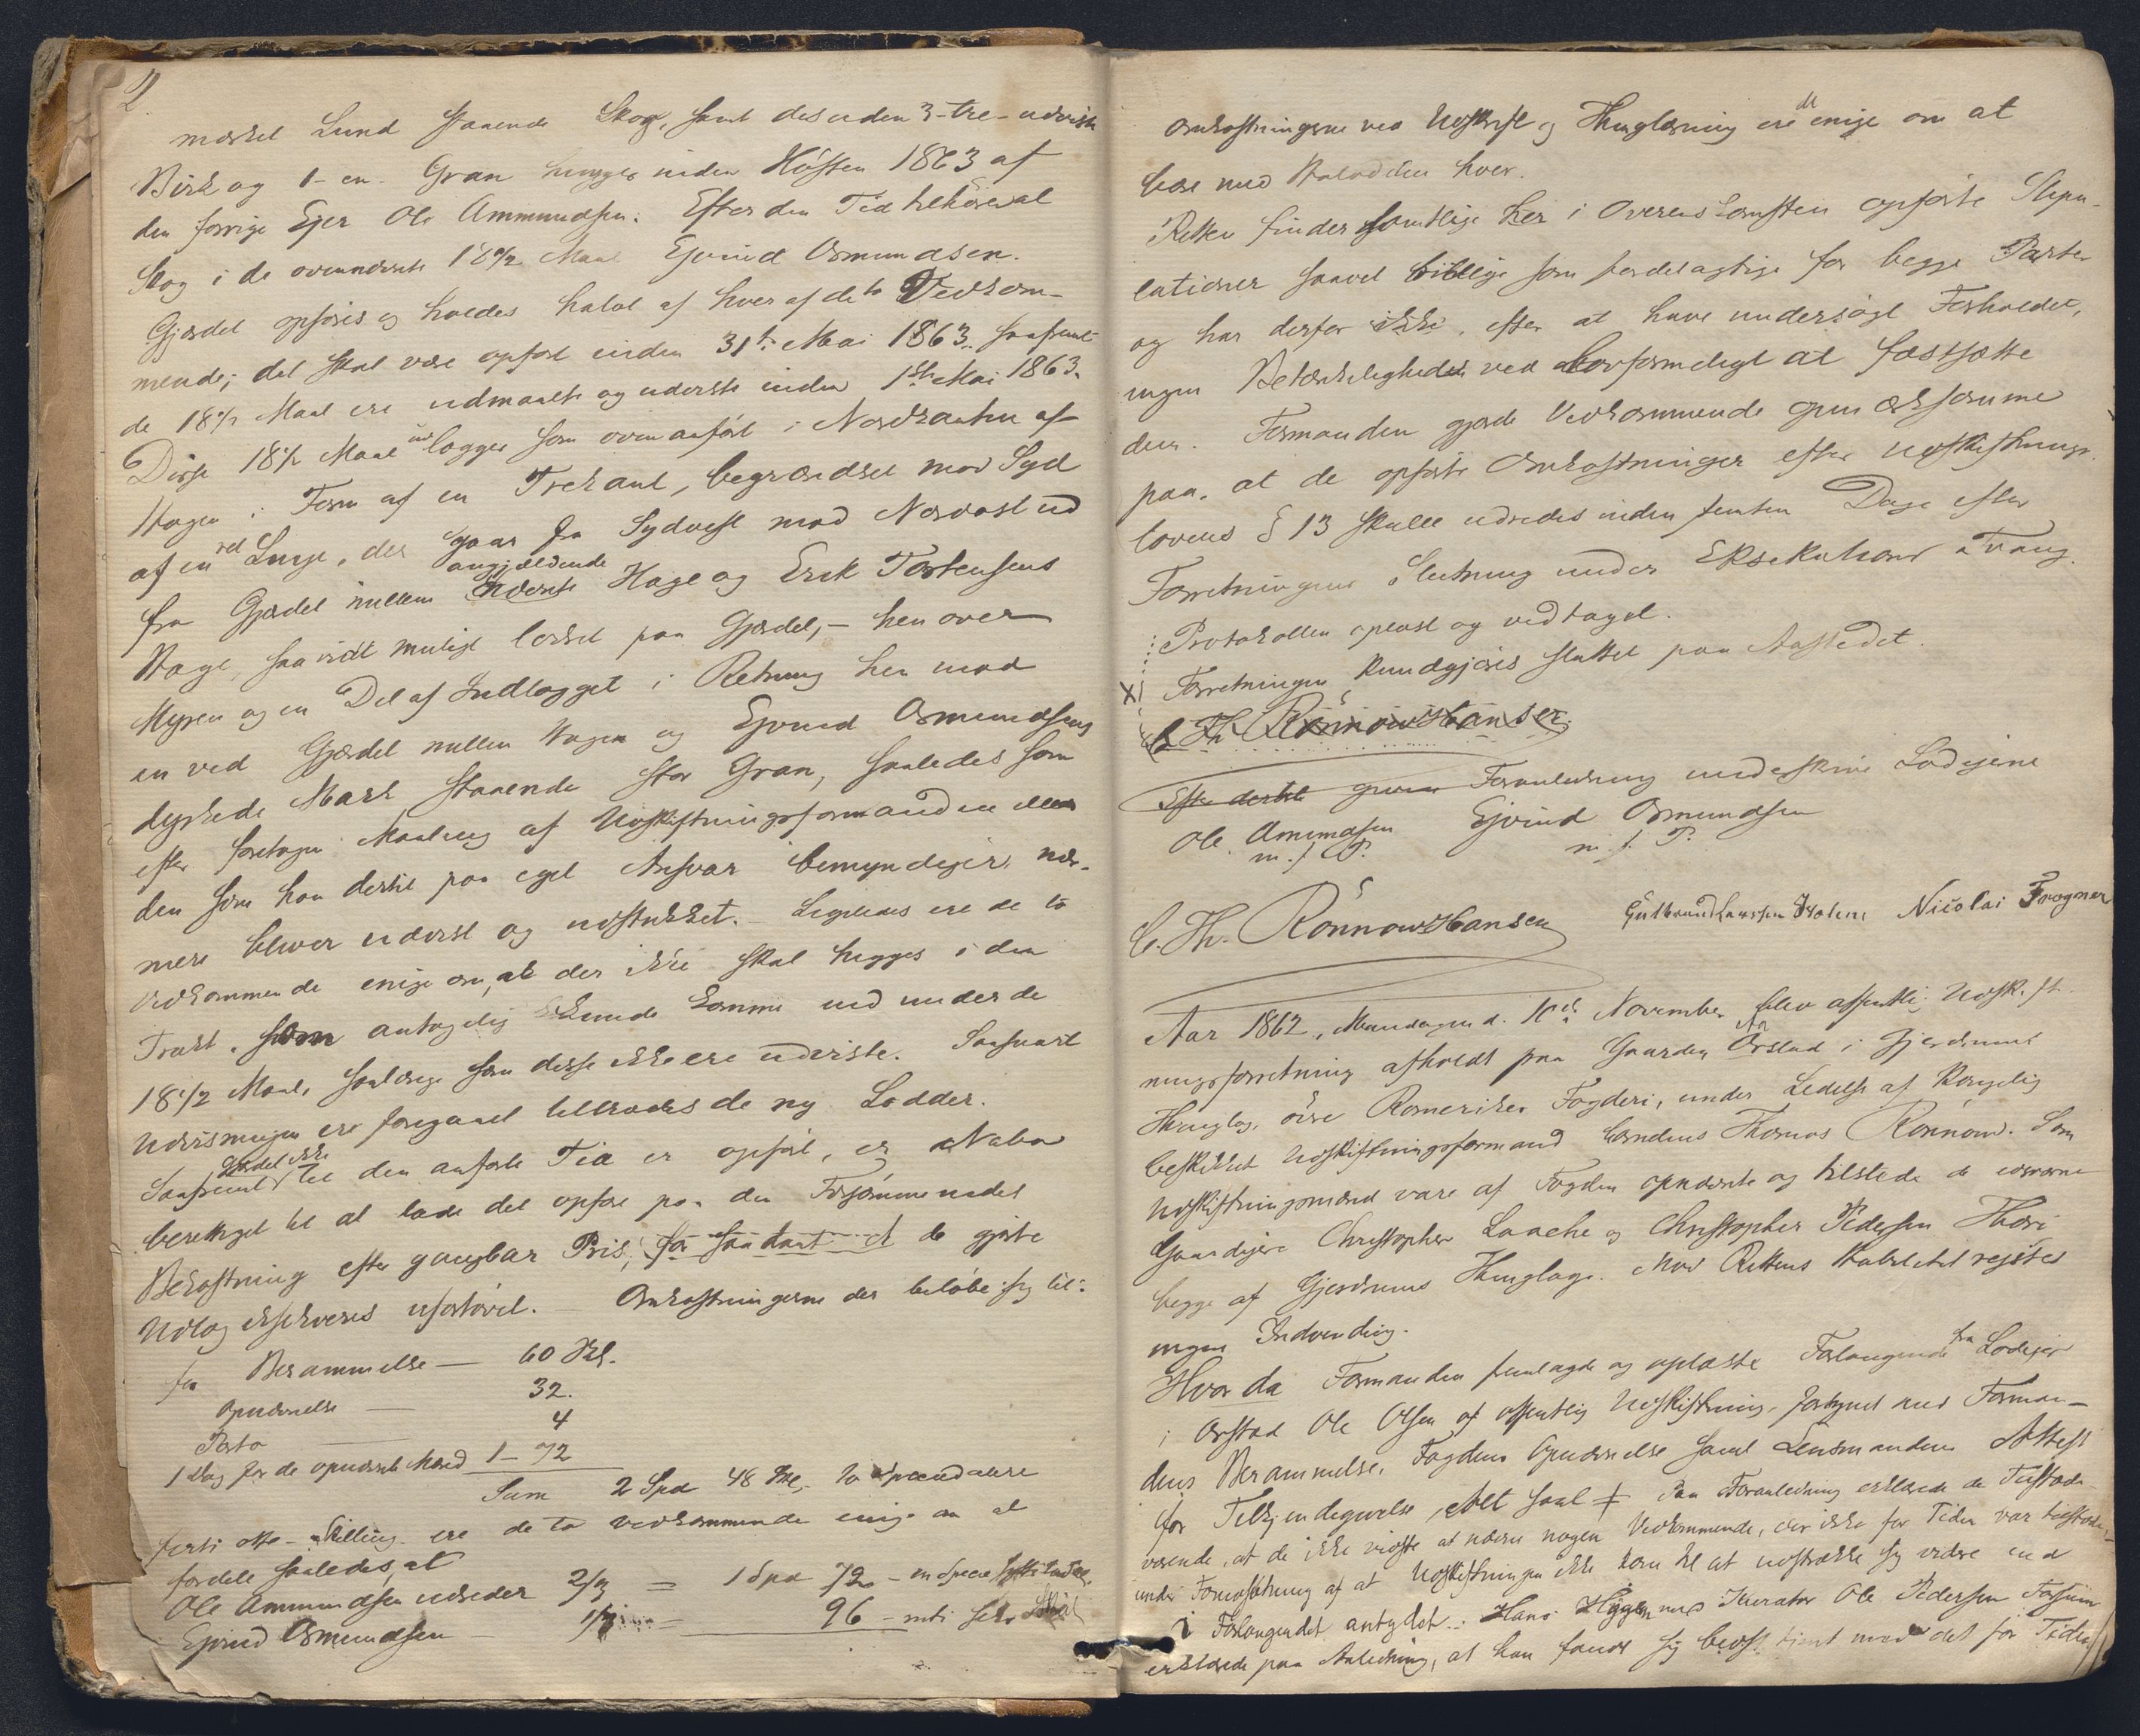 2
mærket Lund staaende Skog, samt desuden 3-tre- udviste
Birk og 1- en- Gran hugges inden Høsten 1863 af
den forrige Ejer Ole Ammundsen. Efter den Tid tilhører al
Skog i de ovennævnte 18½ Maal Ejvind Osmundsen.
Gjerdet opføres og holdes halvt af hver af de to Vedkom-
mende; det skal være opført inden 31te Mai 1863. saafremt
de 18½ Maal ere udmaalte og udviste inden 1ste Mai 1863.
Disse 18½ Maal udlægges som ovenanført i Nordkanten af
Hagen i Form af en Trekant, begrændset mod Syd
af en ret Linje, der gaar fra Sydvest mod Nordost ud
fra Gjerdet mellem angjældende Hage og Erik Torstensens
Hage, saavidt muligt lodret paa Gjerdet, - hen over
Myren og en Del af Indlægget i Retning hen mod
en ved Gjerdet mellem Hagen og Ejvind Osmundsens
dyrkede Mark staaende stor Gran, saaledes som
efter foretagen Maaling af Udskiftningsformanden eller
den som han dertil paa eget Ansvar bemyndiger, nær-
mere bliver udvist og udstukket. - Ligeledes ere de to
Vedkommende enige om, at der ikke skal hugges i den
Trakt, som antagelig kunde komme ind under de
18½ Maal, saalænge som disse ikke ere udviste. Saasnart
Udvisningen er foregaaet tiltrædes de ny Lodder.
Saafremt Gjerdet ikke til den anførte Tid er opført, er Nabo
berettiget til at lade det opføre paa den Forsømmendes
Bekostning efter gangbar Pris, for saa vidt de gjorte
Udlæg exekveres ufortøvet. - Omkostningerne der beløbe sig til:
for Berammelse - 60 Skl.
Opnævnelse - 32.
Porto - 4
1 Dag for de opnævnte Mænd 1 - 72
Sum 2 Spd 48 Skl, to Speciedalere
førti otte - Skilling ere de to vedkommende enige om at
fordele saaledes, at
Ole Ammundsen udreder 2/3 = 1 Spd 72 - en Specie
Ejvind Osmundsen 1/3 = 96 - niti seks Skil
Omkostningerne ved Udskrift og Thinglæsning ere de enige om at
bære med Halvdelen hver.
Retten finder samtlige her i Overenskomsten opførte Stipu-
lationer saavel billige som fordelagtige for begge Parter
og har derfor ikke, efter at have undersøgt Forholdet,
ingen Betænkeligheder ved lovformeligt at fastsætte
dem. Formanden gjorde Vedkommende opmærksomme
paa, at de opførte Omkostninger efter Udskiftnings-
lovens § 13 skulle udredes inden femten Dage efter
Forretningens Slutning under Eksekutions Tvang.
Protokollen oplæst og vedtaget.
Forretningen kundgjøres sluttet paa Aastedet.
C. Th. RönnowHansen.
Efter dertil given Foranledning underskrive Lodejerne
Ole Amundsen Ejvind Osmundsen
m. f. P. m. f. P.
C. Th. RönnowHansen Gulbrand Larssen Nicolai Frogner
Aar 1862, Mandagen d. 10de November blev offentlig Udskift-
ningsforretning afholdt paa Gaarden Ørstad i Gjerdrums
Thinglag, øvre Romerikes Fogderi, under Ledelse af kongelig
beskikket Udskiftningsformand Cornelius Thomas Rönnow. Som
Udskiftningsmænd vare af Fogden opnævnte og tilstede de edsvorne
Gaardejere Christopher Laache og Christopher Pedersen
begge af Gjerdrums Thinglag. Mod Rettens Habilitet rejstes
ingen Indvending.
Hvor da Formanden fremlagde og oplæste Forlangende fra Lodejer
i Ørstad Ole Olsen af offentlig Udskiftning, forsynet med Forman-
dens Berammelse, Fogdens Opnævnelse samt Lensmandens Attest
for Tilkjendegivelse Alt saal + Paa Foranledning erklærede de Tilstede-
værende, at de ikke vidste at nævne nogen Vedkommende, der ikke for Tiden var tilstede
under Forudsætning af at Udskiftningen ikke kom til at udstrække sig videre end
i Forlangendet antydet. Hans med Kurator Ole Pedersen
erklærede paa Anledning, at han fandt sig bedst tjent med det for Tiden